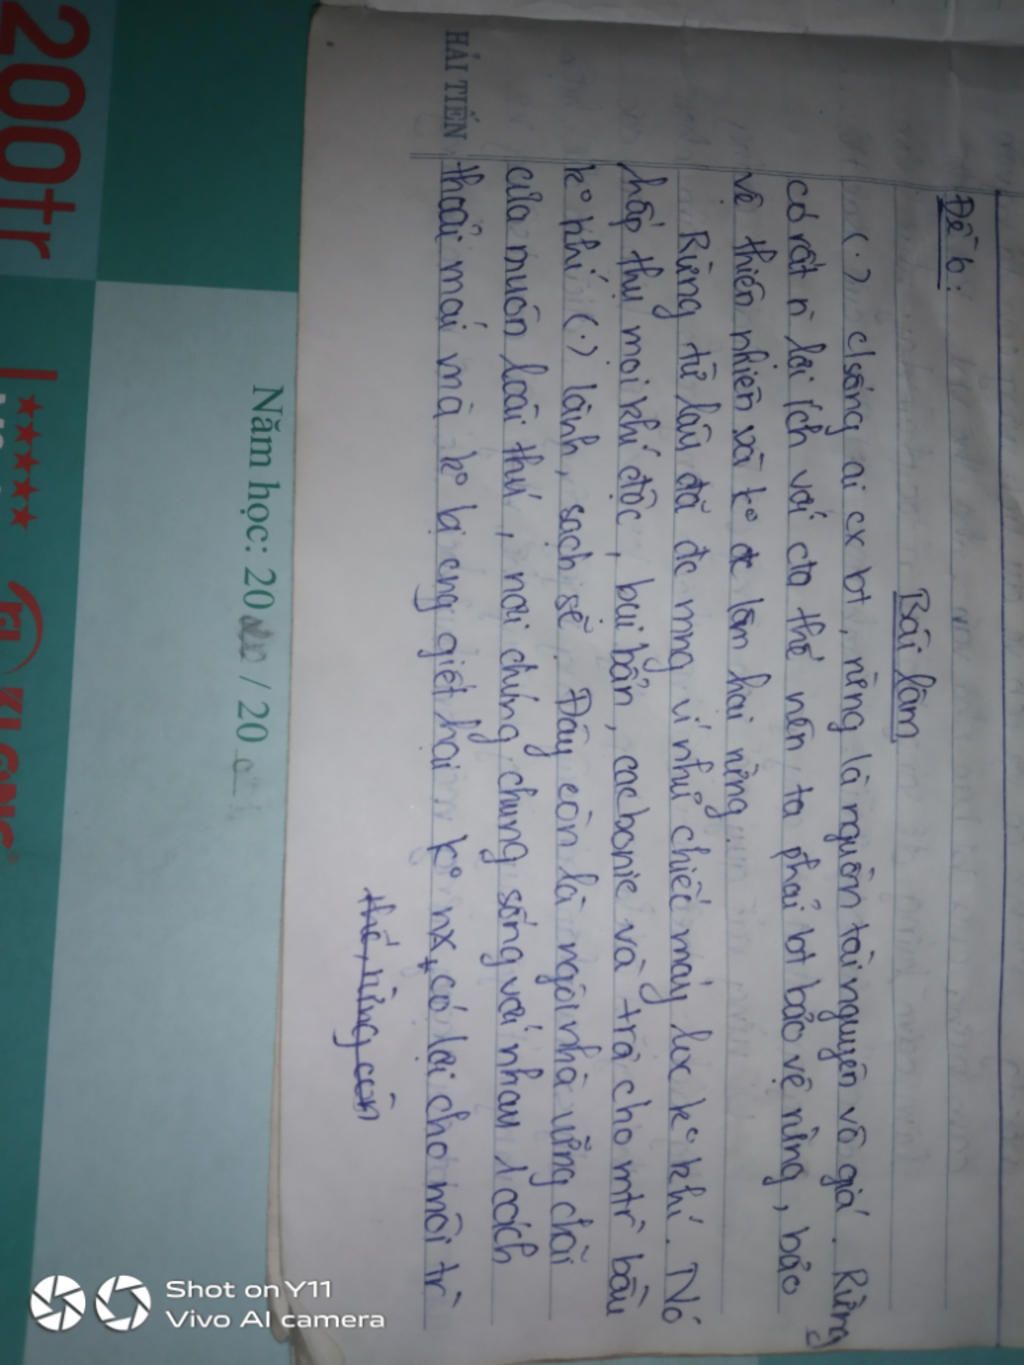 Đề 6:
Bài làm
(.) c/sống ai cx bt, rừng là nguồn tài nguyên vô giá. Rừng
có rất n lợi ích với cta thế nên ta phải bt bảo vệ rừng, bảo
vệ thiên nhiên và k° đc làm hại rừng.
Rừng từ lâu đã đc mng ví như chiếc máy lọc k° khí. Nó
hấp thụ mọi khí độc, bụi bẩn, cacbonic và trả cho mtr` bầu
k° khí (.) lành, sạch sẽ. Đây còn là ngôi nhà vững chãi
của muôn loài thú, nơi chúng chung sống với nhau 1 cách
thoải mái mà k° bị cng giết hại k° nx, có lợi cho môi tr`
thế, rừng còn
HẢI TIẾN
Năm học: 20 / 20
200tr
KLONG
Shot on Y11
Vivo AI camera